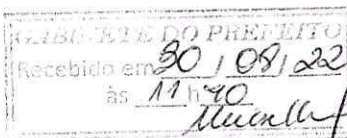 GABINETE DO PREFEITO
Recebido em 30 / 08 / 22
às 11 h 40